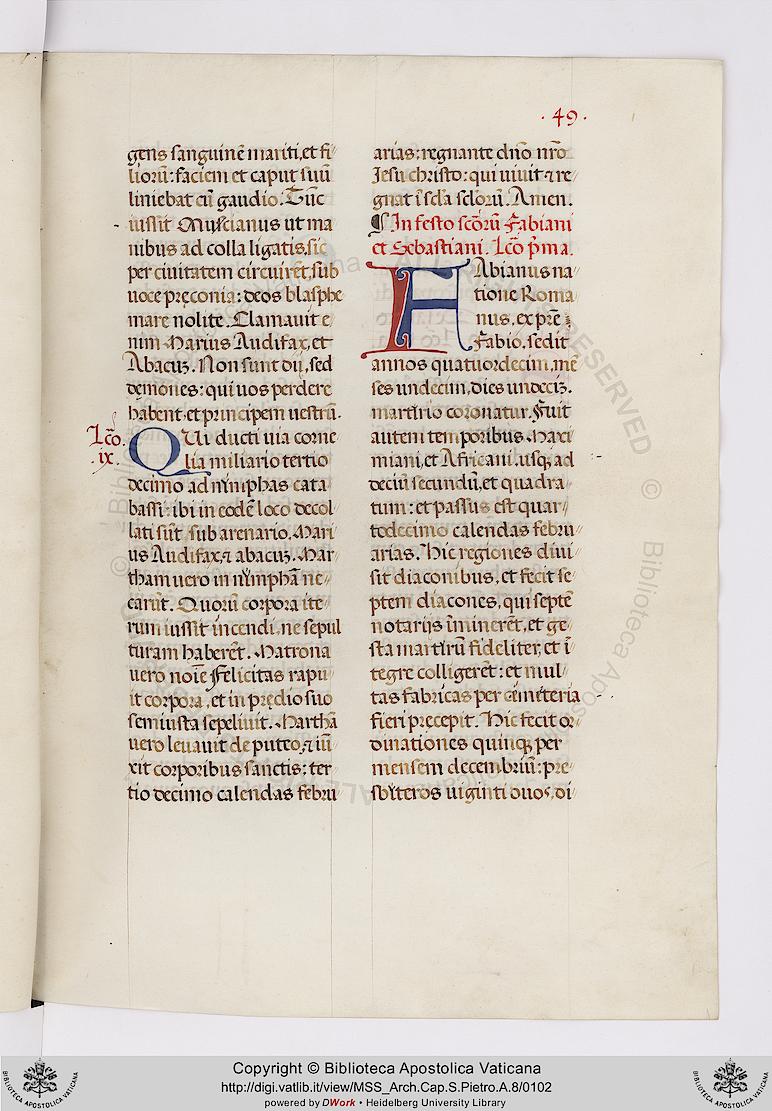 ·49·
gens sanguinē mariti, et fi
liorū: faciem et caput suū
liniebat cū gaudio. Tūc
iussit Muscianus ut ma
nibus ad colla ligatis, sic
per civitatem circuirēt, sub
voce pręconia: deos blasphe
mare nolite. Clamavit e
nim Marius Audifax, et
Abacuz. Non sunt dii, sed
demones: qui vos perdere
habent, et principem vestrū.
Lcō. ix.
QUi ducti via corne
lia miliario tertio
decimo ad nimphas cata
bassi: ibi in eodē loco decol
lati sūt sub arenario. Mari
us Audifax, ⁊ abacuz. Mar
tham vero in nimphā ne
carūt. Quorū corpora ite
rum iussit incendi, ne sepul
turam haberēt. Matrona
vero noīe Felicitas rapu
it corpora, et in prędio suo
semiusta sepelivit. Marthā
vero levavit de puteo, ⁊ iū
xit corporibus sanctis: ter
tio decimo calendas febru
arias: regnante dn̄o nr̄o
Jesu christo: qui vivit ⁊ re
gnat ī scl̄a scl̄orū. Amen.
¶ In festo scōrū Fabiani
et Sebastiani. Lcō p̄ma.
FAbianus na
tione Roma
nus, ex prē
Fabio, sedit
annos quatuordecim, mē
ses undecim, dies undeciz.
martirio coronatur. Fuit
autem temporibus Maxi
miani, et Africani, usq; ad
deciū secundū, et quadra
tum: et passus est quar
todecimo calendas febru
arias. Hic regiones divi
sit diaconibus, et fecit se
ptem diacones, qui septē
notariis īminerēt, et ge
sta martirū fideliter, et ī
tegre colligerēt: et mul
tas fabricas per cimiteria
fieri pręcepit. Hic fecit or
dinationes quinq; per
mensem decembriū: pre
sbiteros viginti duos, di
Copyright © Biblioteca Apostolica Vaticana
http://digi.vatlib.it/view/MSS_Arch.Cap.S.Pietro.A.8/0102
powered by DWork • Heidelberg University Library
BIBLIOTECA APOSTOLICA VATICANA
BIBLIOTECA APOSTOLICA VATICANA